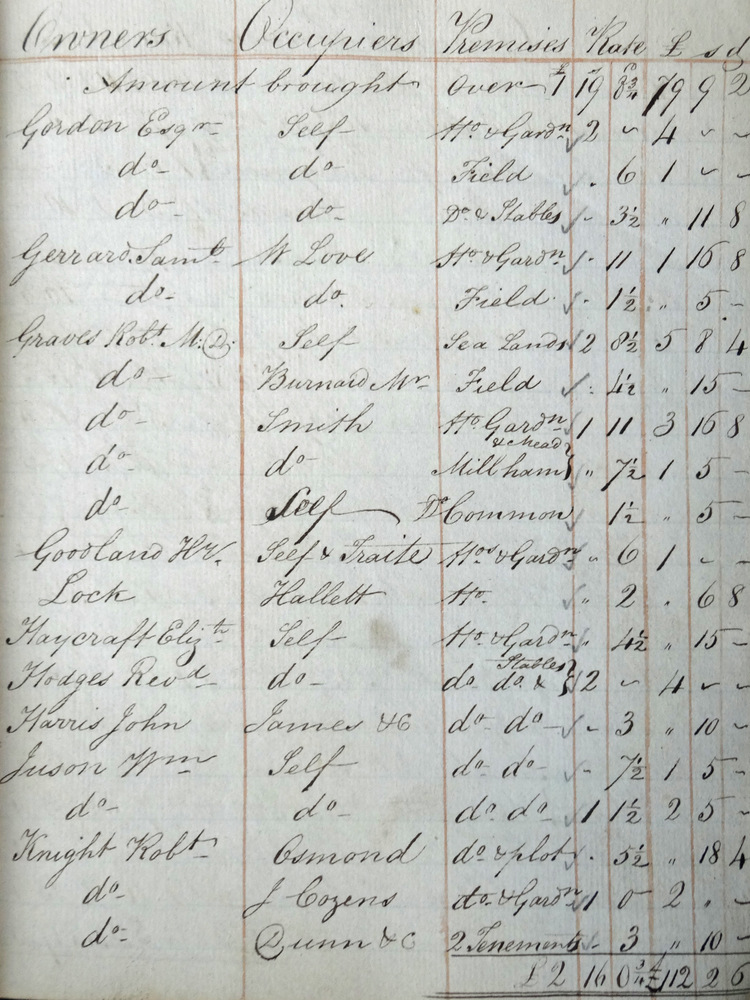 Owners Occupiers Premises Rate £ s d
Amount brought Over £1 19 8¾ 79 9 2
Gordon Esqr Self Ho. & Gardn 2 ~ 4 ~ ~
do do Field . 6 1 ~ ~
do do Do. & Stables - 3½ " 11 8
Gerrard Saml. W Love Ho & Gardn . 11 1 16 8
do do. Field . 1½ " 5 -
Graves Robt. M. D. Self Sea Lands 2 8½ 5 8 4
do Burnard Mr Field . 4½ " 15 -
do Smith Ho Gardn & Mead 1 11 3 16 8
do do Millham " 7½ 1 5 -
do Self Do Common 1½ " 5 -
Goodland Hy. Self & Traite Hos & Gardn " 6 1 - -
Lock Hallett Ho. " 2 " 6 8
Haycraft Elizth Self Ho & Gardn " 4½ " 15 -
Hodges Revd do do do & Stables 2 ~ 4 ~ ~
Harris John James &C do do - 3 " 10 -
Juson Wm Self do do - 7½ 1 5 -
do do do do 1 1½ 2 5 -
Knight Robt Osmond do & plot . 5½ " 18 4
do J Cozens do & Gardn 1 0 2 " ~
do Dunn &C 2 Tenements - 3 " 10 -
£2 16 0¾ £112 2 6